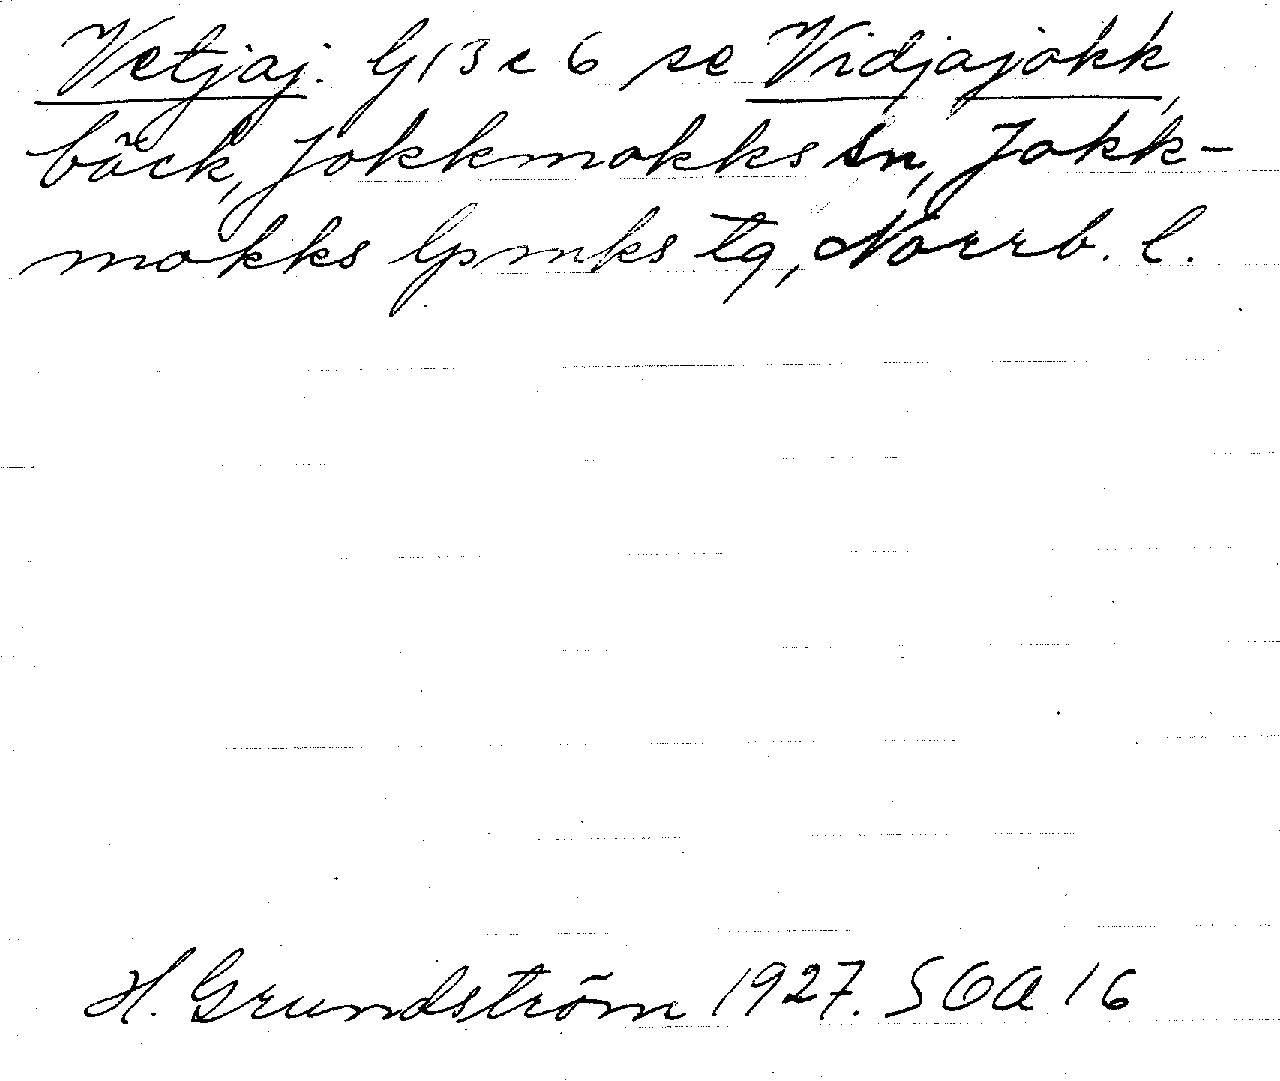 Vetjaj. G13c6 se Vidjajokk,
bäck, Jokkmokks sn, Jokk-
mokks lpmks tg, Norrb. l.
H. Grundström 1927. SOA 16